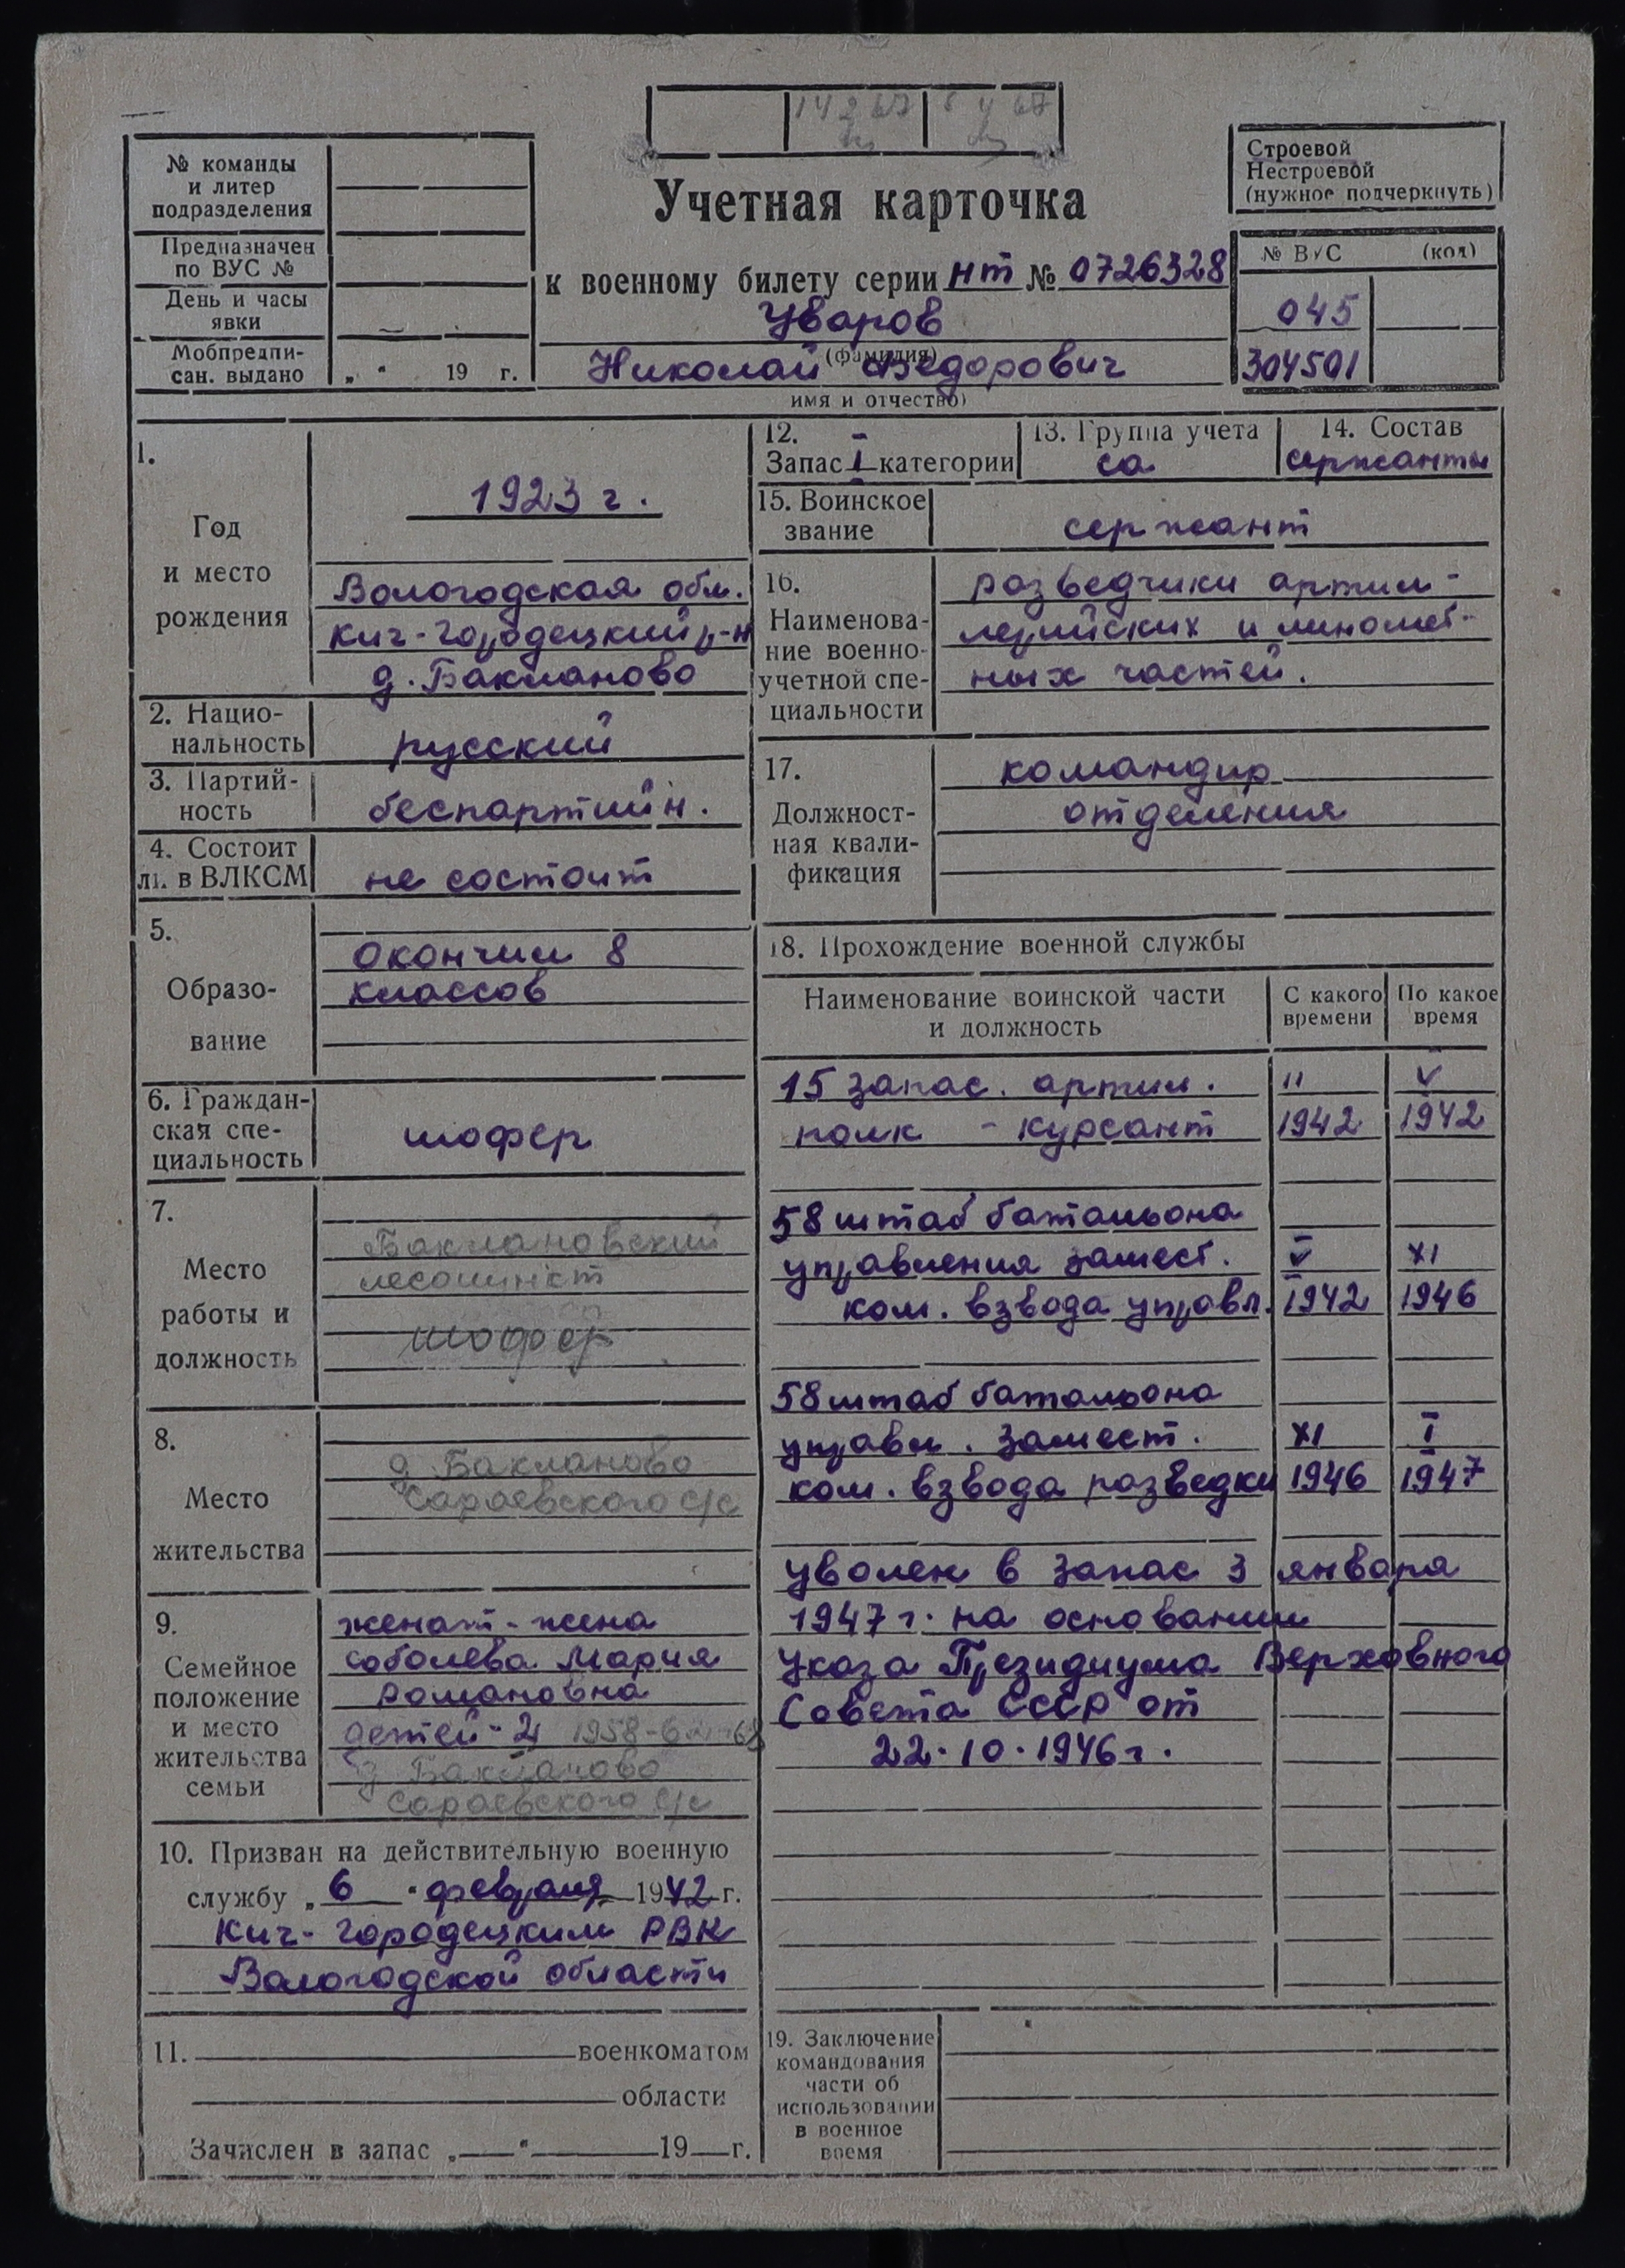 14 2 67
№ команды
и литер
подразделения
Предназначен
по ВУС №
День и часы
явки
Мобпредпи-
сан. выдано
„ “ 19 г.
Учетная карточка
к военному билету серии нт № 0726328
Уваров
(фамилия)
Николай Федорович
имя и отчество)
Строевой
Нестроевой
(нужное подчеркнуть)
№ ВУС (код)
045
304501
1.
Год
и место
рождения
1923 г.
Вологодская обл.
Кич-Городецкий р-н
д. Бакланово
2. Нацио-
нальность
русский
3. Партий-
ность
беспартийн.
4. Состоит
ли в ВЛКСМ
не состоит
5.
Образо-
вание
окончил 8
классов
6. Граждан-
ская спе-
циальность
шофер
7.
Место
работы и
должность
Баклановский
лесопункт
шофер
8.
Место
жительства
д Бакланово
Сараевского с/с
9.
Семейное
положение
и место
жительства
семьи
женат - жена
Соболева Мария
Романовна
детей - 2 1958
д Бакланово
Сараевского с/с
10. Призван на действительную военную
службу „6“ февраля 1942 г.
Кич-Городецким РВК
Вологодской области
11. военкоматом
области
Зачислен в запас „ “ 19 г.
12.
Запас I категории
13. Группа учета
са
14. Состав
сержанты
15. Воинское
звание
сержант
16.
Наименова-
ние военно-
учетной спе-
циальности
разведчики артил-
лерийских и миномет-
ных частей.
17.
Должност-
ная квали-
фикация
командир
отделения
18. Прохождение военной службы
Наименование воинской части
и должность
С какого
времени
По какое
время
15 запас. артил. II V
полк - курсант 1942 1942
58 штаб батальона
управления замест. V XI
ком. взвода управл. 1942 1946
58 штаб батальона
управл. замест. XI I
ком. взвода разведки 1946 1947
уволен в запас 3 января
1947 г. на основании
Указа Президиума Верховного
Совета СССР от
22.10.1946 г.
19. Заключение
командования
части об
использовании
в военное
время